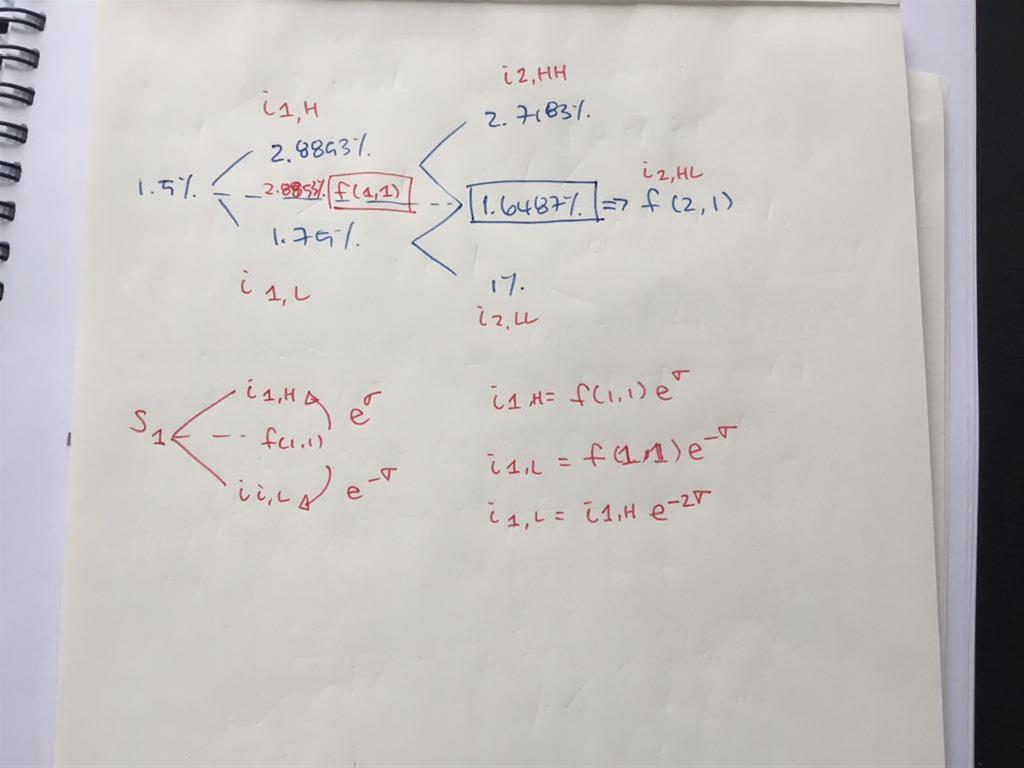 i2,HH
i1,H
2.7183%.
2.8853%.
i2,HL
1.5% 2.8853% f(1,1) 1.6487% => f(2,1)
1.75%.
i1,L
1%.
i2,LL
i1,H
S1 f(1,1) e^σ
ii,L e^-σ
i1H = f(1,1) e^σ
i1,L = f(1,1) e^-σ
i1,L = i1,H e^-2σ